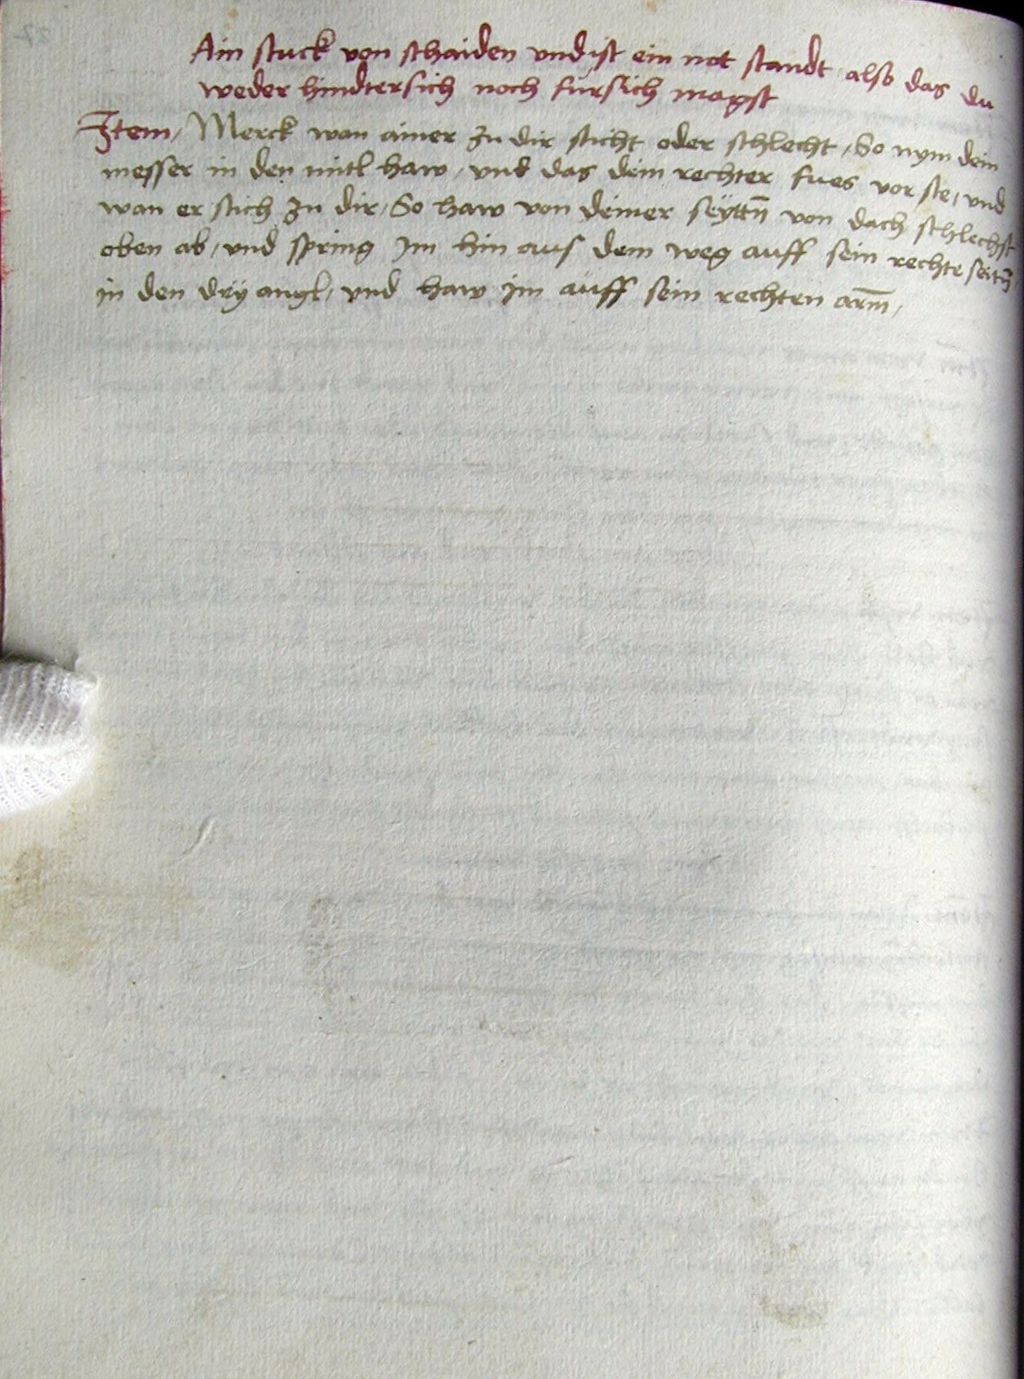 Ain stuck von schaiden und ist ein not standt also das du
weder hindtersich noch fürsich magst
Item / Merck wan ainer zu dir sticht oder schlecht / So nym dein
messer in den mitl haw / und das dein rechter fues vor ste / und
wan er stich zu dir / So haw von deiner seyttn̄ von dach schlechst
oben ab / und spring Im hin aus dem weg auff sein rechte seitn̄
in den dry angl / und haw im auff sein rechten arm̄ /